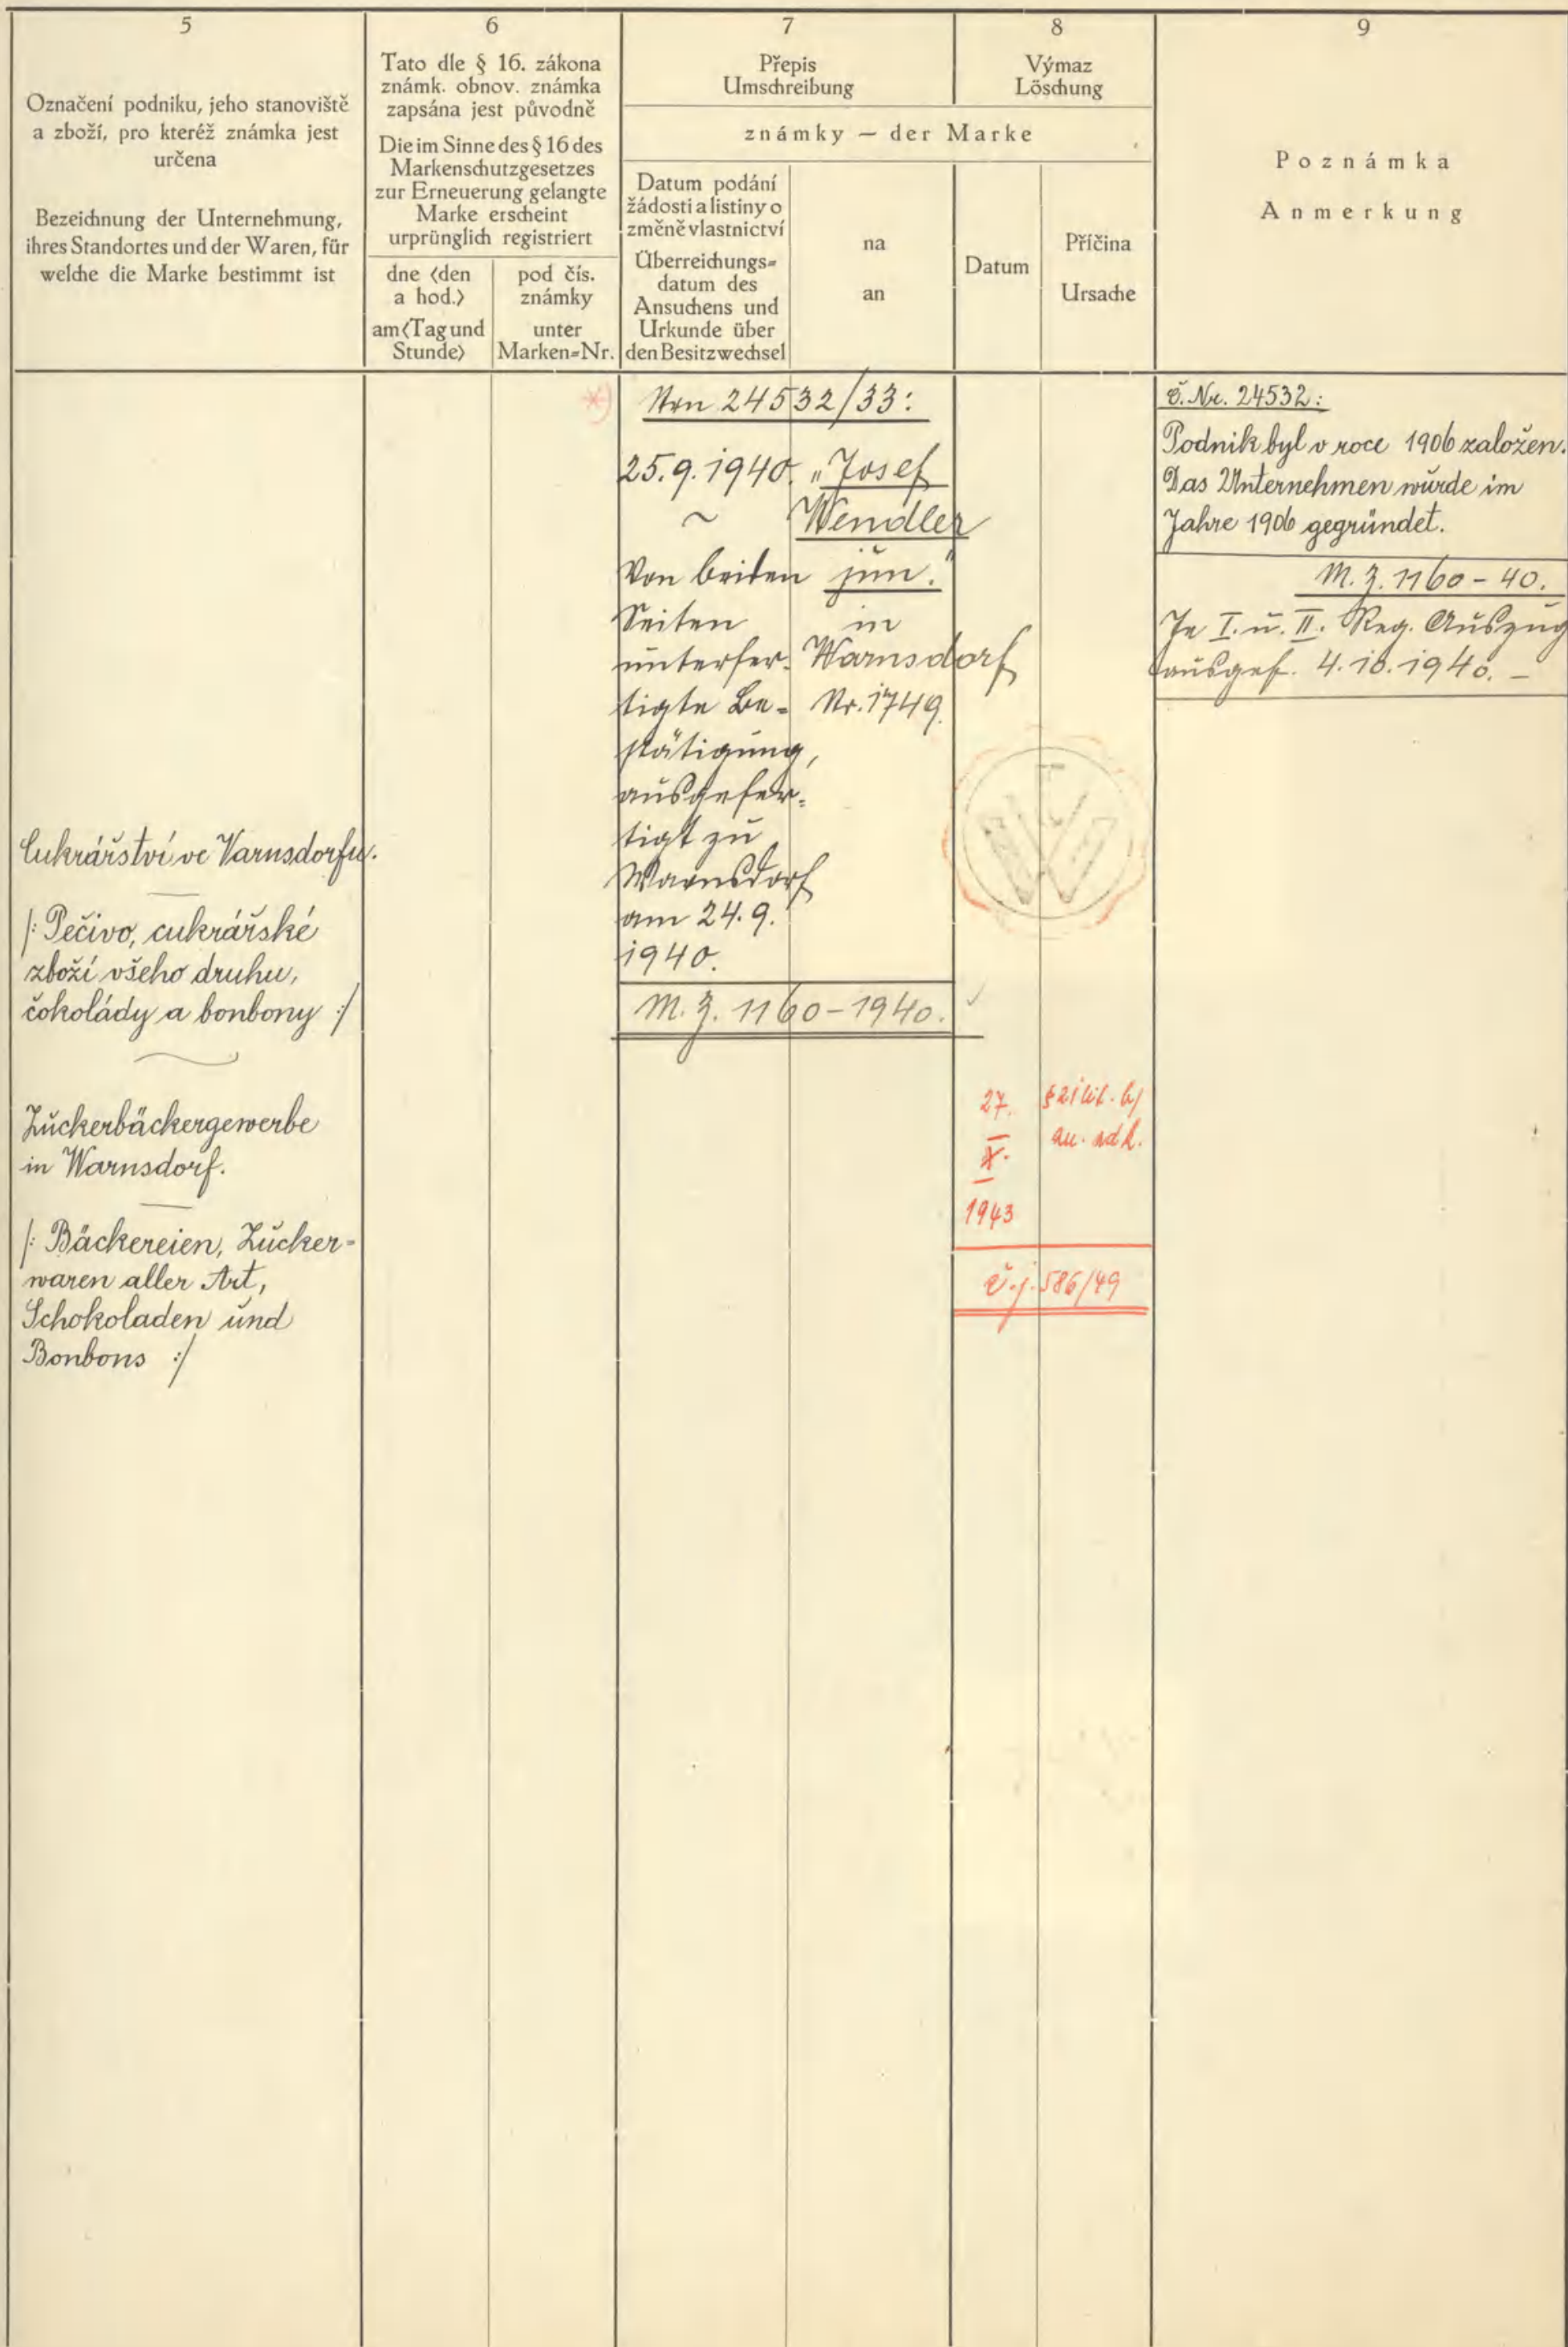 5
Označení podniku, jeho stanoviště
a zboží, pro kteréž známka jest
určena
Bezeichnung der Unternehmung,
ihres Standortes und der Waren, für
welche die Marke bestimmt ist
6
Tato dle § 16. zákona
známk. obnov. známka
zapsána jest původně
Die im Sinne des § 16 des
Markenschutzgesetzes
zur Erneuerung gelangte
Marke erscheint
urprünglich registriert
dne (den
a hod.)
am (Tag und
Stunde)
pod čís.
známky
unter
Marken=Nr.
7
Přepis
Umschreibung
8
Výmaz
Löschung
známky — der Marke
Datum podání
žádosti a listiny o
změně vlastnictví
Überreichungs=
datum des
Ansuchens und
Urkunde über
den Besitzwechsel
na
an
Datum
Příčina
Ursache
9
Poznámka
Anmerkung
Cukrářství ve Varnsdorfu.
/: Pečivo, cukrářské
zboží všeho druhu,
čokolády a bonbony :/
Zuckerbäckergewerbe
in Warnsdorf.
/: Bäckereien, Zucker-
waren aller Art,
Schokoladen und
Bonbons :/
*)
24532/33:
25.9.1940.
Von beiden
Seiten
unterfer-
tigte Be-
stätigung,
ausgefer-
tigt zu
Warnsdorf
am 24.9.
1940.
"Josef
Wendler
jun."
in
Warnsdorf
Nr. 1749.
M. Z. 1160-1940.
27.
X.
1943
§ 21 lit. b/
č.j. 586/49
č. Nr. 24532:
Podnik byl v roce 1906 založen.
Das Unternehmen wurde im
Jahre 1906 gegründet.
M. Z. 1160-40.
Je I. u. II. Reg. Auszug
ausgef. 4.10.1940. -